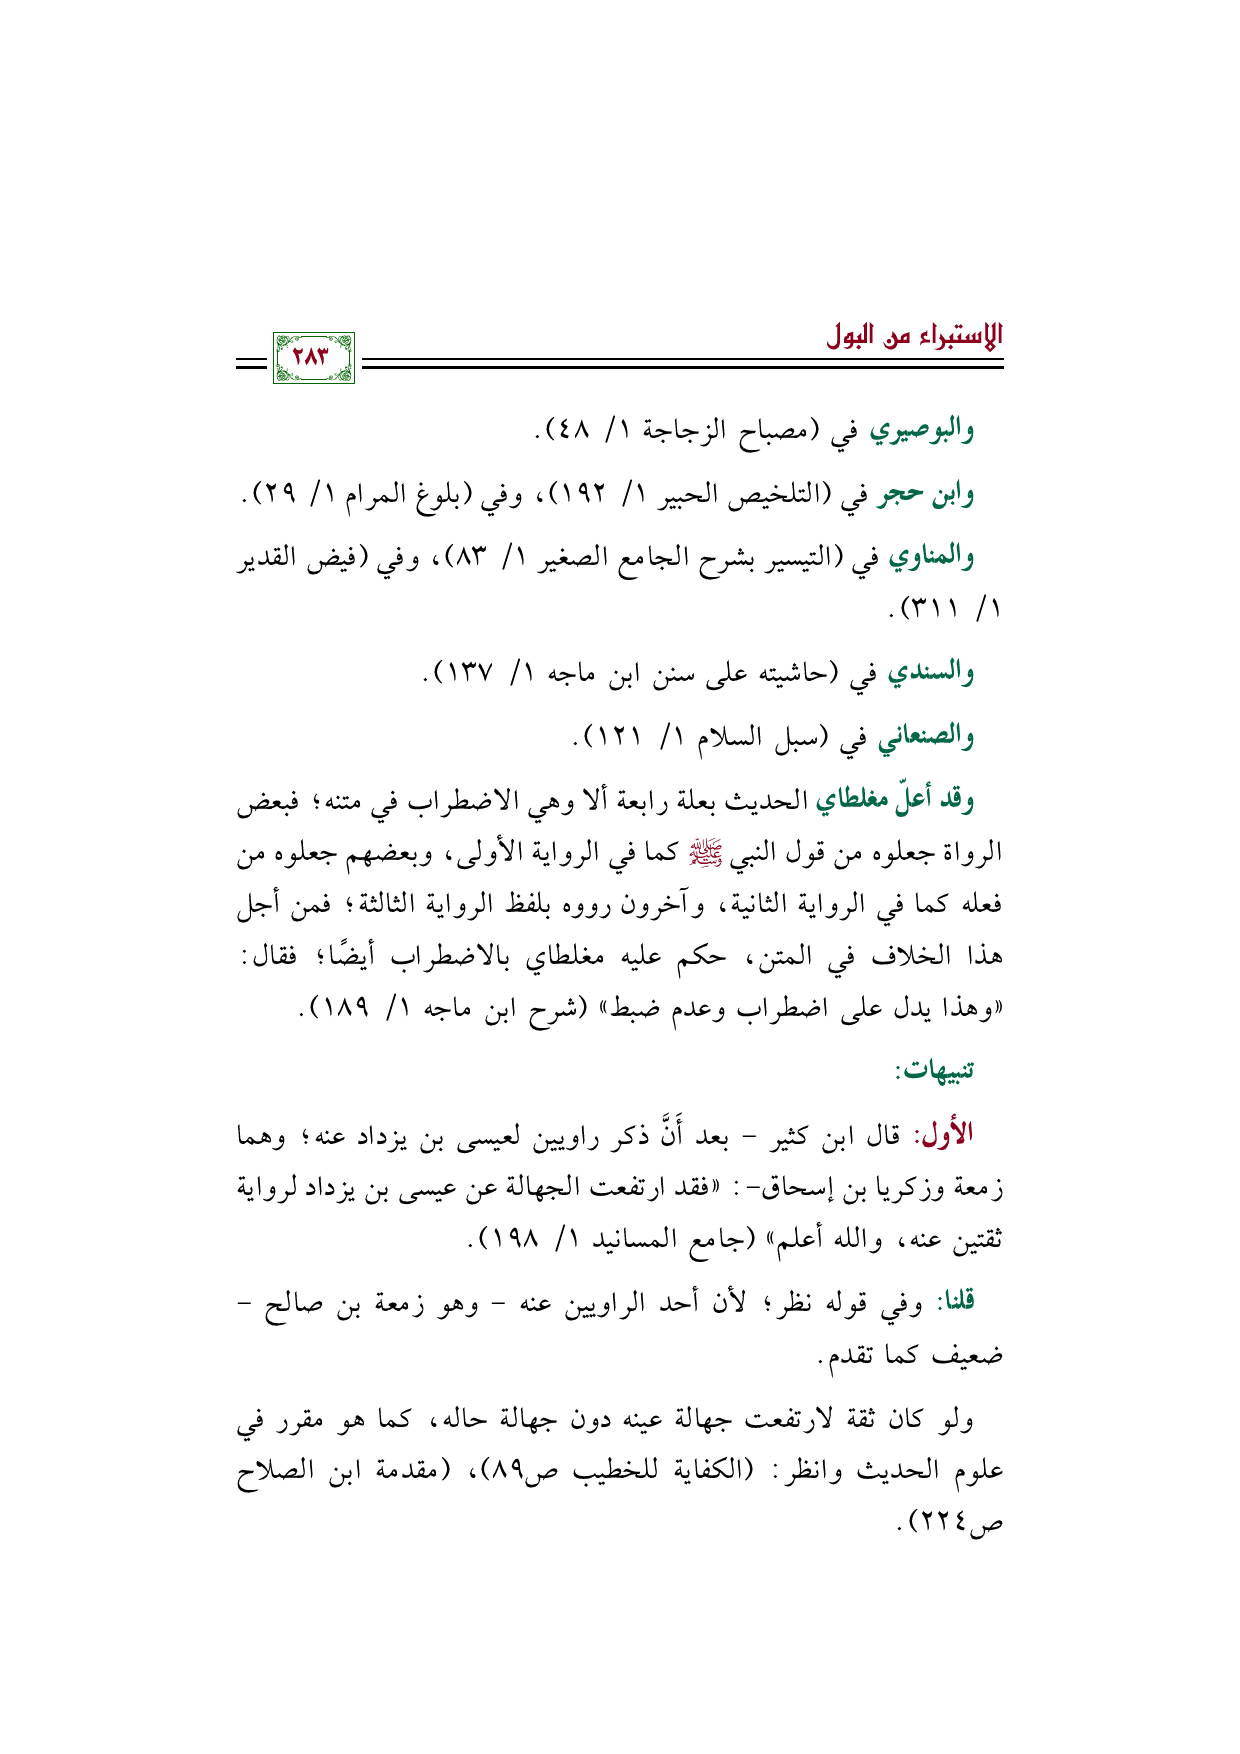 الاستبراء من البول
٢٨٣
والبوصيري في (مصباح الزجاجة ١/ ٤٨).
وابن حجر في (التلخيص الحبير ١/ ١٩٢)، وفي (بلوغ المرام ١/ ٢٩).
والمناوي في (التيسير بشرح الجامع الصغير ١/ ٨٣)، وفي (فيض القدير
١/ ٣١١).
والسندي في (حاشيته على سنن ابن ماجه ١/ ١٣٧).
والصنعاني في (سبل السلام ١/ ١٢١).
وقد أعلّ مغلطاي الحديث بعلة رابعة ألا وهي الاضطراب في متنه؛ فبعض
الرواة جعلوه من قول النبي ﷺ كما في الرواية الأولى، وبعضهم جعلوه من
فعله كما في الرواية الثانية، وآخرون رووه بلفظ الرواية الثالثة؛ فمن أجل
هذا الخلاف في المتن، حكم عليه مغلطاي بالاضطراب أيضًا؛ فقال:
«وهذا يدل على اضطراب وعدم ضبط» (شرح ابن ماجه ١/ ١٨٩).
تنبيهات:
الأول: قال ابن كثير - بعد أَنَّ ذكر راويين لعيسى بن يزداد عنه؛ وهما
زمعة وزكريا بن إسحاق-: «فقد ارتفعت الجهالة عن عيسى بن يزداد لرواية
ثقتين عنه، والله أعلم» (جامع المسانيد ١/ ١٩٨).
قلنا: وفي قوله نظر؛ لأن أحد الراويين عنه - وهو زمعة بن صالح -
ضعيف كما تقدم.
ولو كان ثقة لارتفعت جهالة عينه دون جهالة حاله، كما هو مقرر في
علوم الحديث وانظر: (الكفاية للخطيب ص٨٩)، (مقدمة ابن الصلاح
ص٢٢٤).